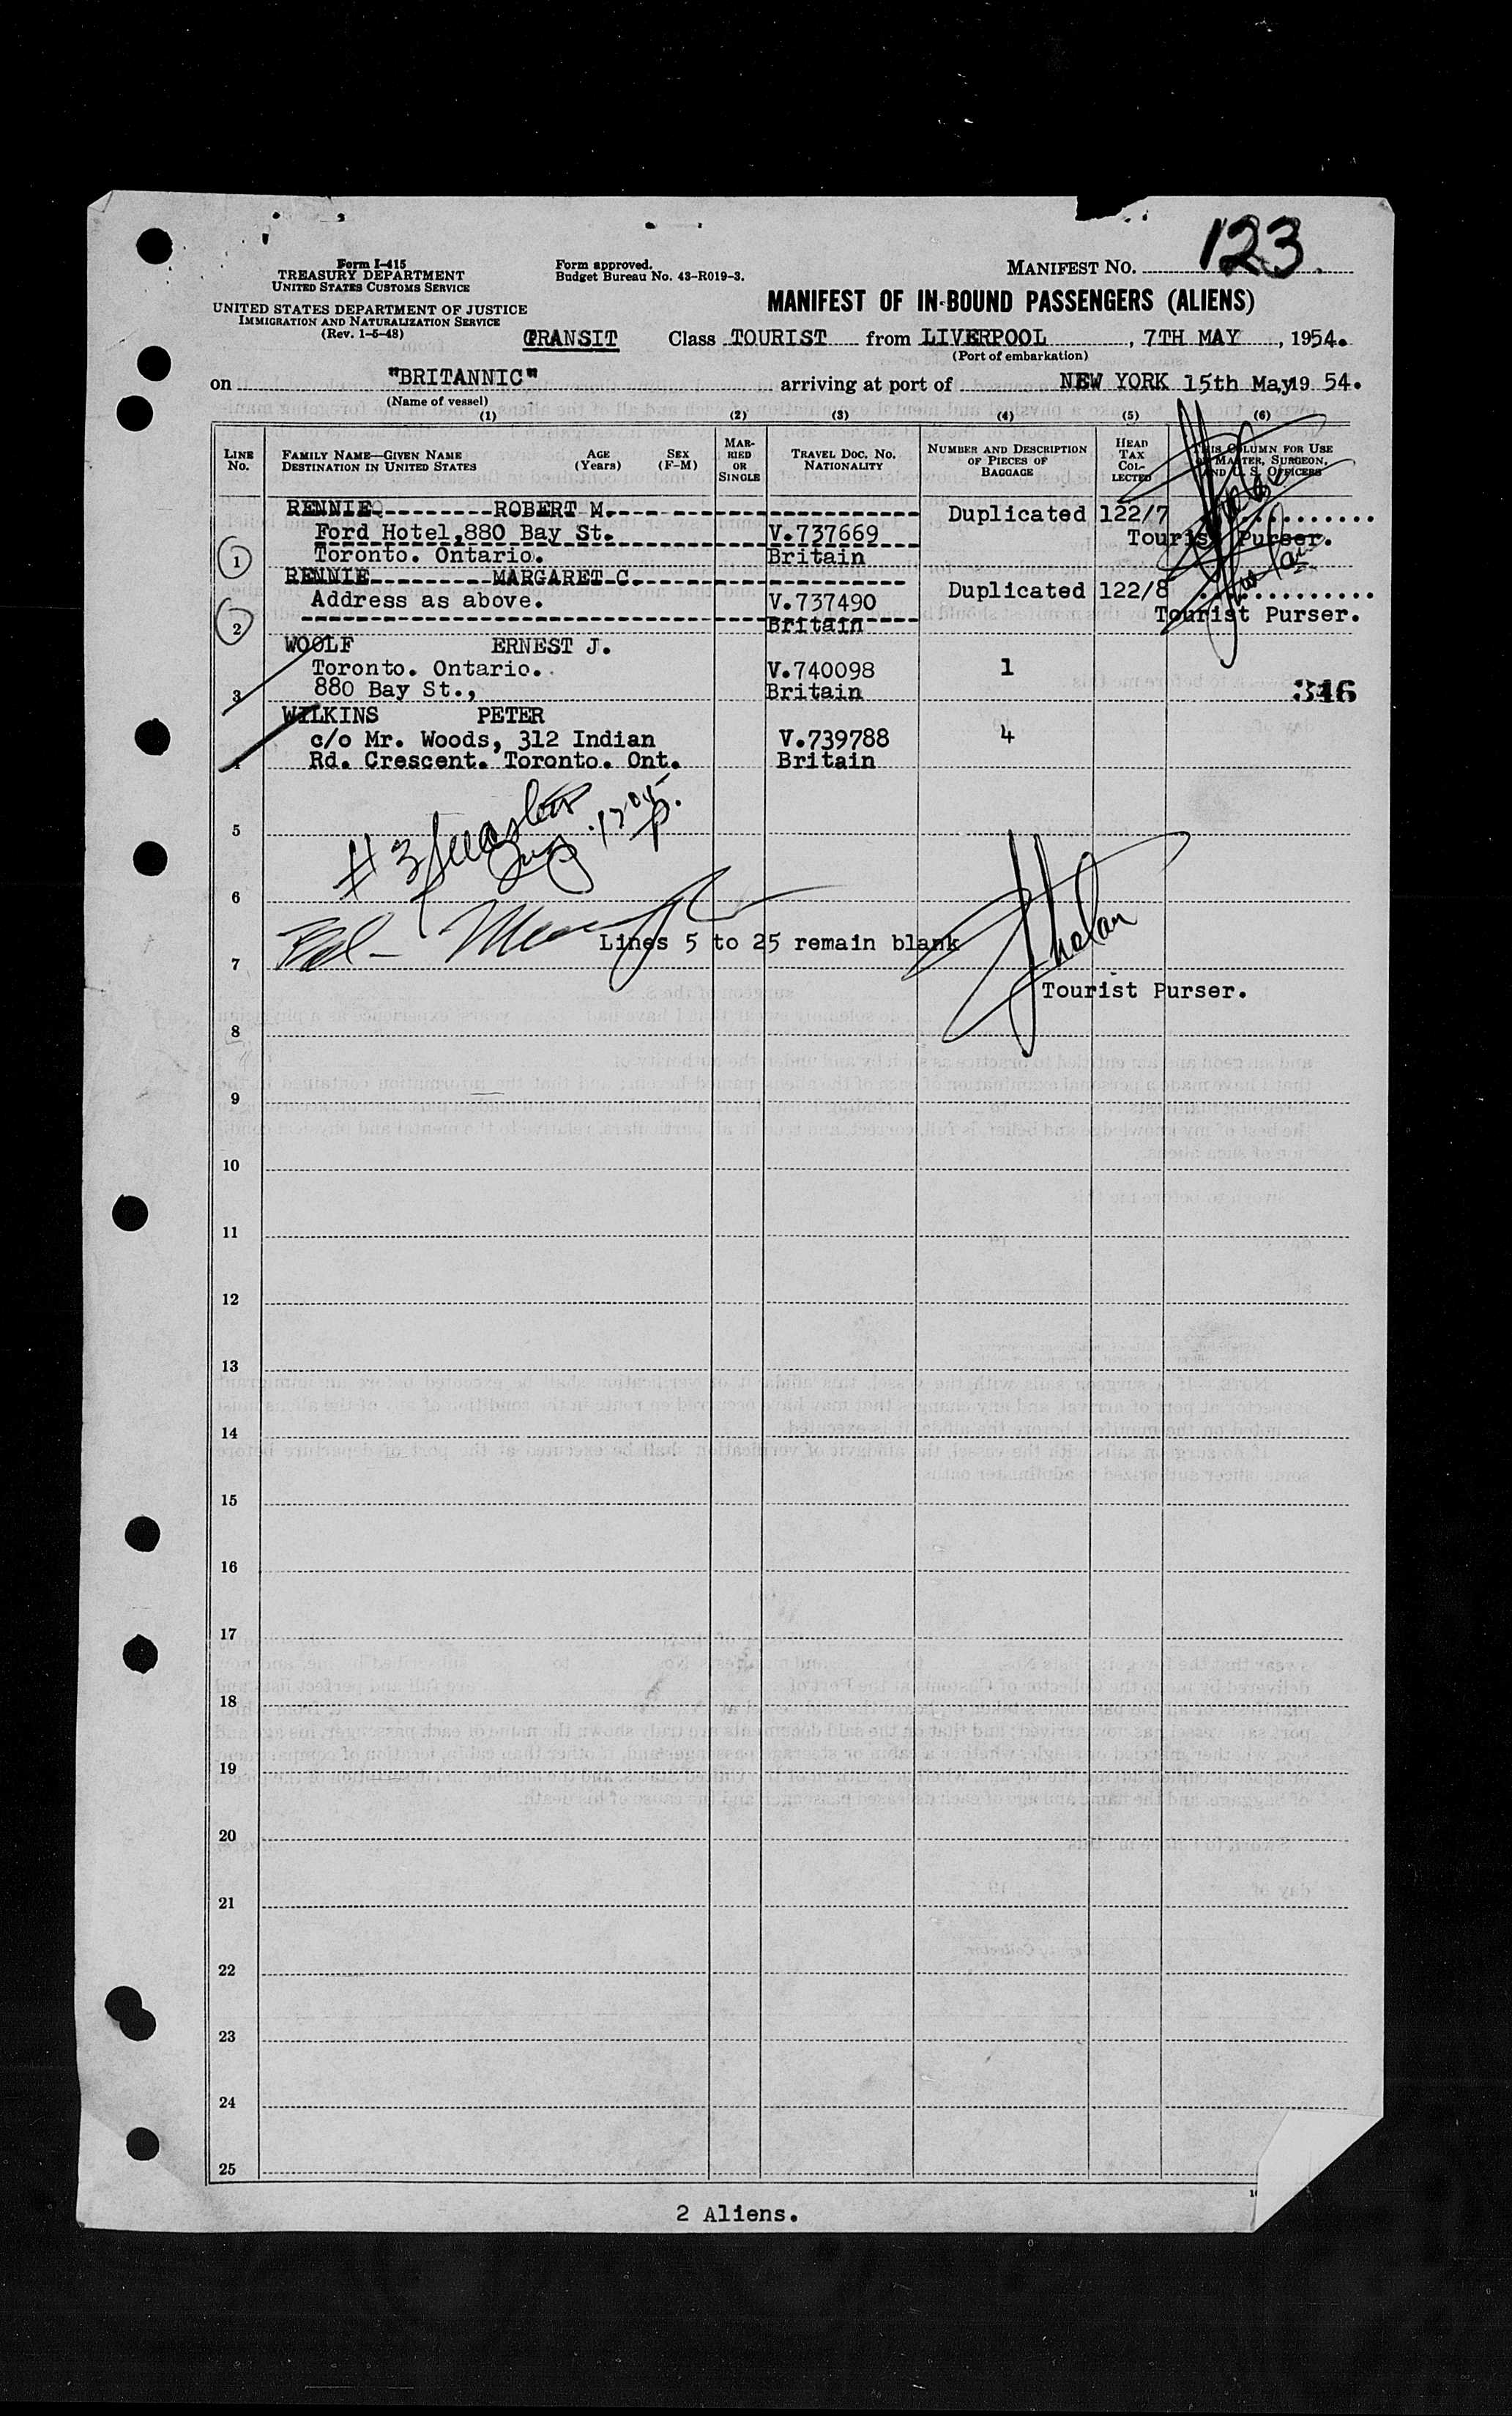 123
Form I-415
TREASURY DEPARTMENT
UNITED STATES CUSTOMS SERVICE
UNITED STATES DEPARTMENT OF JUSTICE
IMMIGRATION AND NATURALIZATION SERVICE
(Rev. 1-5-48)
Form approved.
Budget Bureau No. 43-R019-3.
MANIFEST NO.
MANIFEST OF IN-BOUND PASSENGERS (ALIENS)
TRANSIT Class TOURIST from LIVERPOOL, 7TH MAY, 1954.
(Port of embarkation)
on "BRITANNIC" arriving at port of NEW YORK 15th May 19 54.
(Name of vessel)
(1) (2) (3) (4) (5) (6)
LINE NO.
FAMILY NAME—GIVEN NAME AGE (Years) SEX (F-M)
DESTINATION IN UNITED STATES
MARRIED OR SINGLE
TRAVEL DOC. NO. NATIONALITY
NUMBER AND DESCRIPTION OF PIECES OF BAGGAGE
HEAD TAX COLLECTED
THIS COLUMN FOR USE OF MASTER, SURGEON, AND U. S. OFFICERS
RENNIE ROBERT M. Duplicated 122/7
Ford Hotel,880 Bay St. V.737669 Tourist Purser.
1 Toronto. Ontario. Britain
RENNIE MARGARET C. Duplicated 122/8
Address as above. V.737490 Tourist Purser.
2 Britain
WOOLF ERNEST J.
Toronto. Ontario. V.740098 1
3 880 Bay St., Britain 346
WILKINS PETER
c/o Mr. Woods, 312 Indian V.739788 4
4 Rd. Crescent. Toronto. Ont. Britain
5
# 3
6
Lines 5 to 25 remain blank
7
Tourist Purser.
8
9
10
11
12
13
14
15
16
17
18
19
20
21
22
23
24
25
2 Aliens.